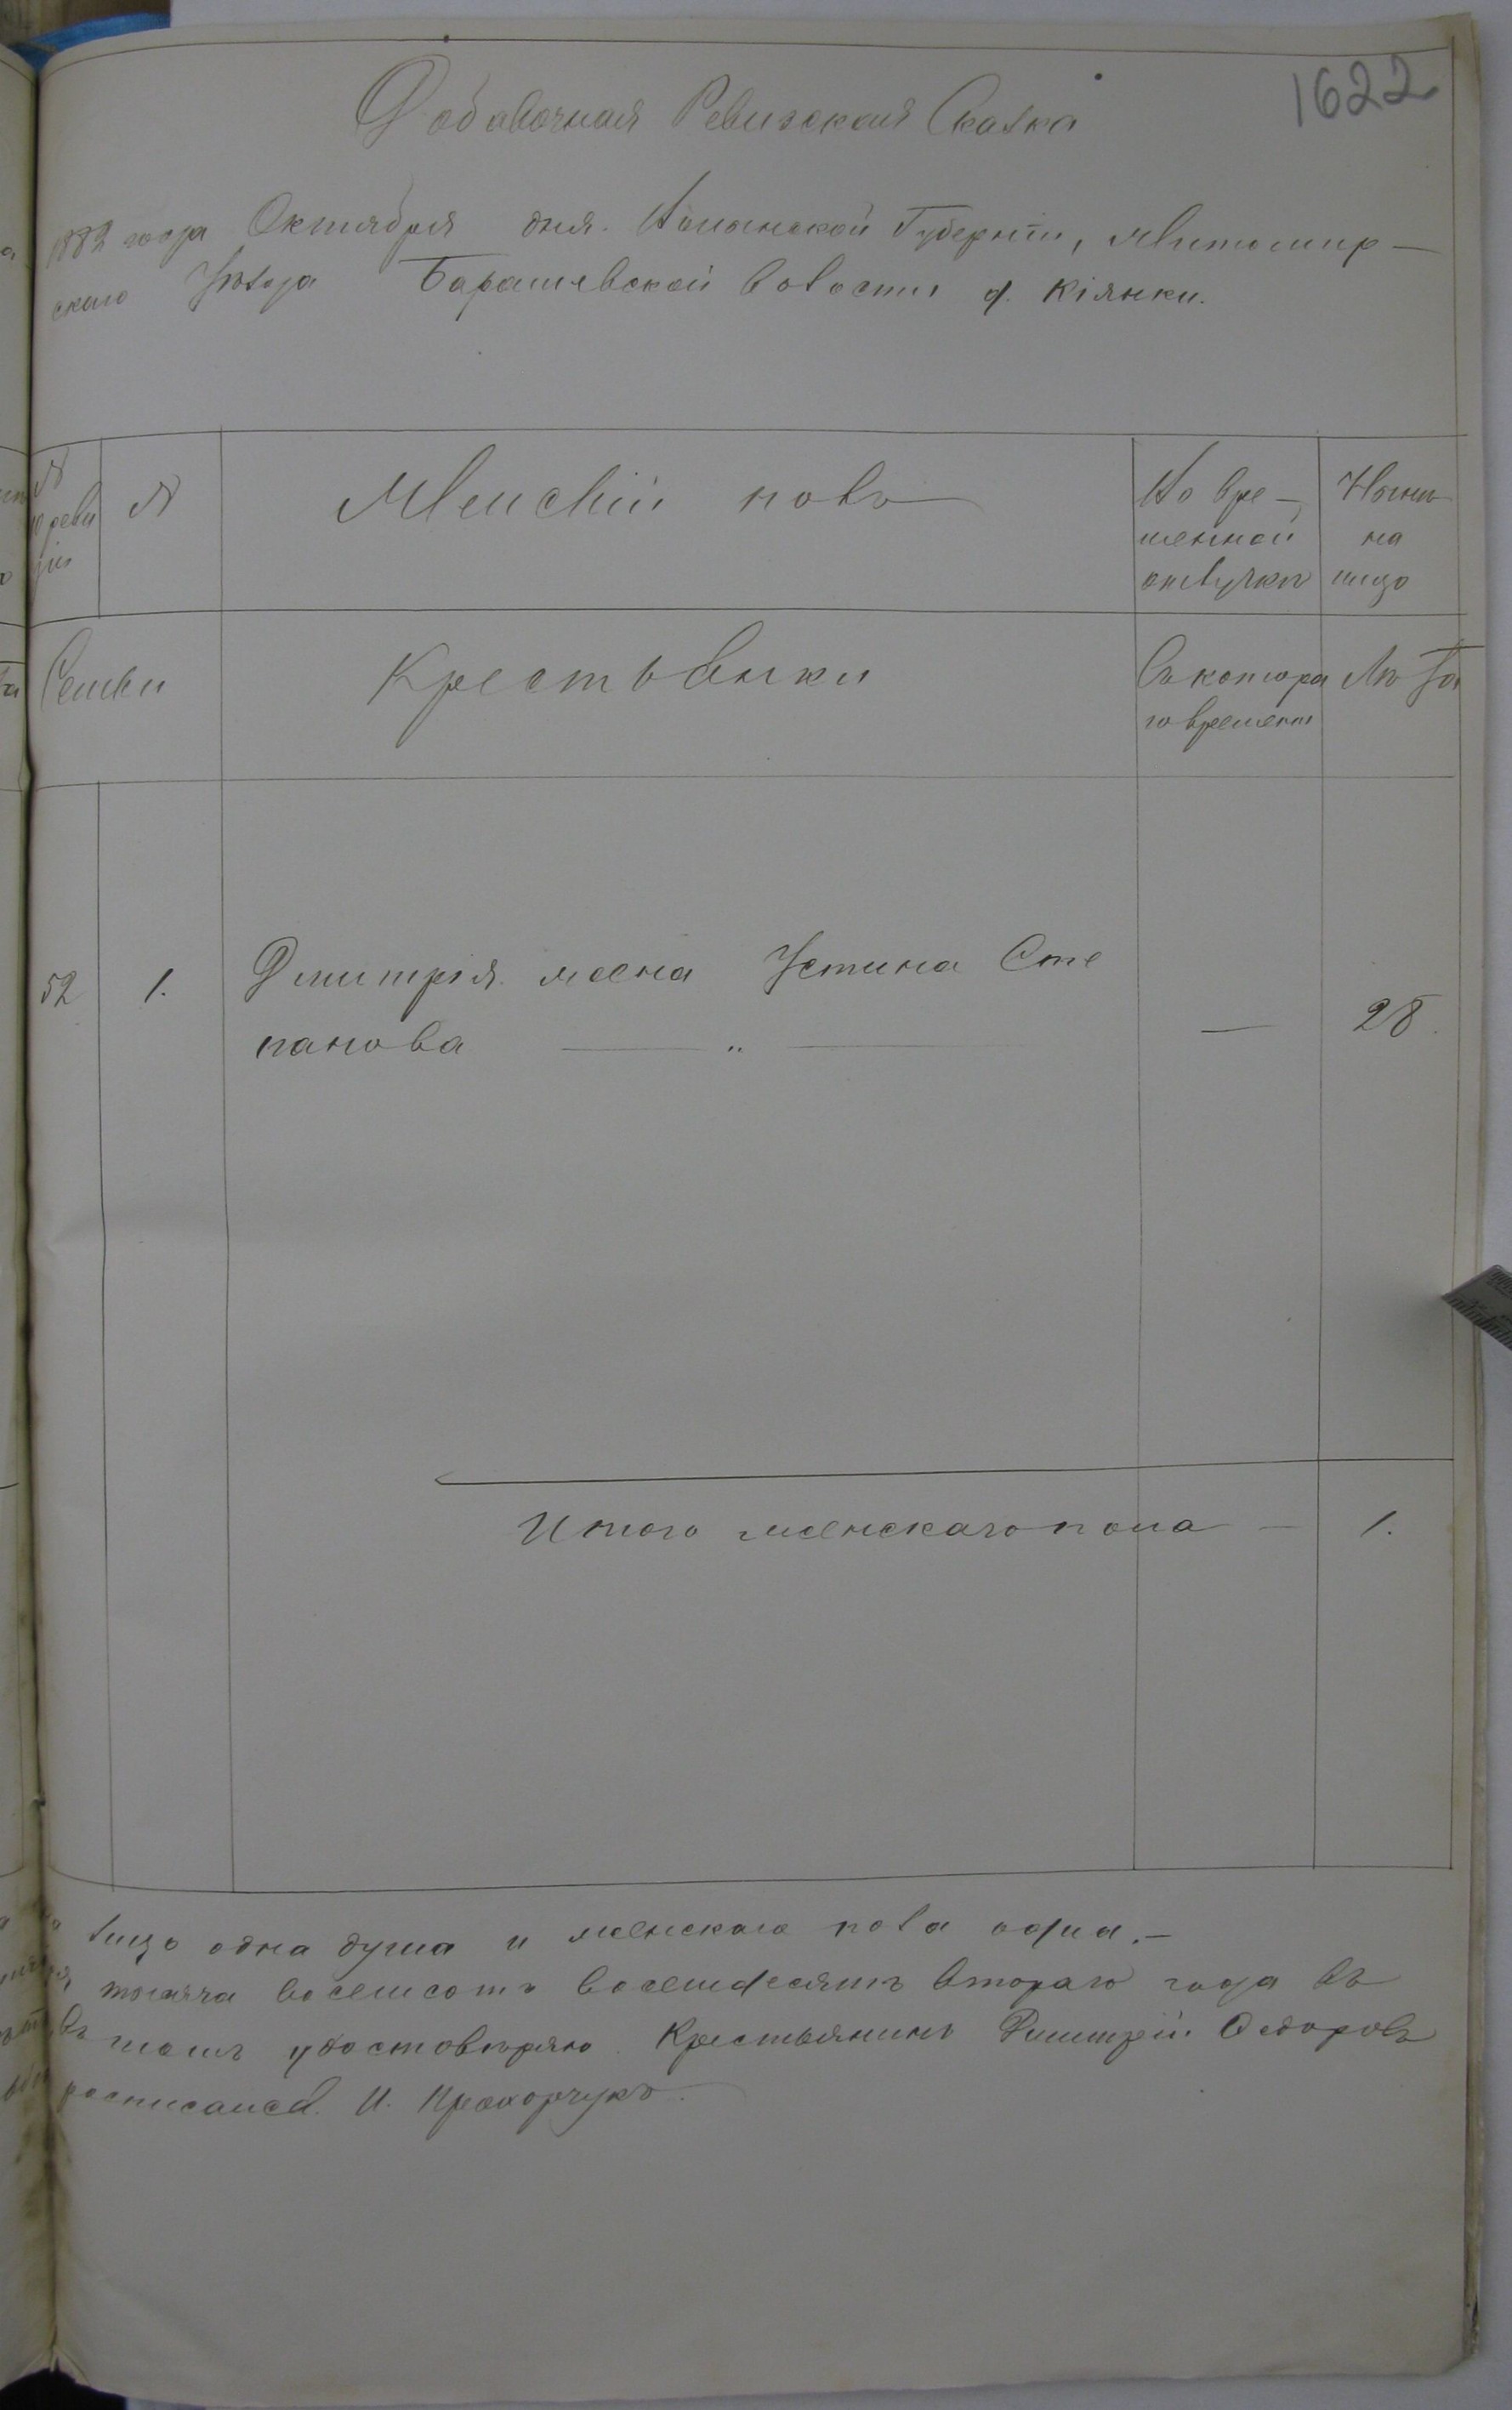 1622
Добавочная Ревизская Сказка
1882 года Октября дня. Волынской Губерніи, Житомир-
скаго Уѣзда Барашевской волости д. Кіянки.
№
ревизіи
№
Женскій полъ
Во вре-
менной
отлучкѣ
Нынѣ
на
лицо
Семьи
Крестьянки
Съ котора
го времени
Лѣта
52 1. Дмитрія жена Устина Сте
панова — " — — 28.
Итого женскаго пола — 1.
лицо одна душа и женскаго пола одна.—
тысяча восемсотъ восемдесятъ втораго года въ
въ томъ удостовѣряю Крестьянинъ Дмитрій Федоровъ
росписался. И. Прохорчукъ.